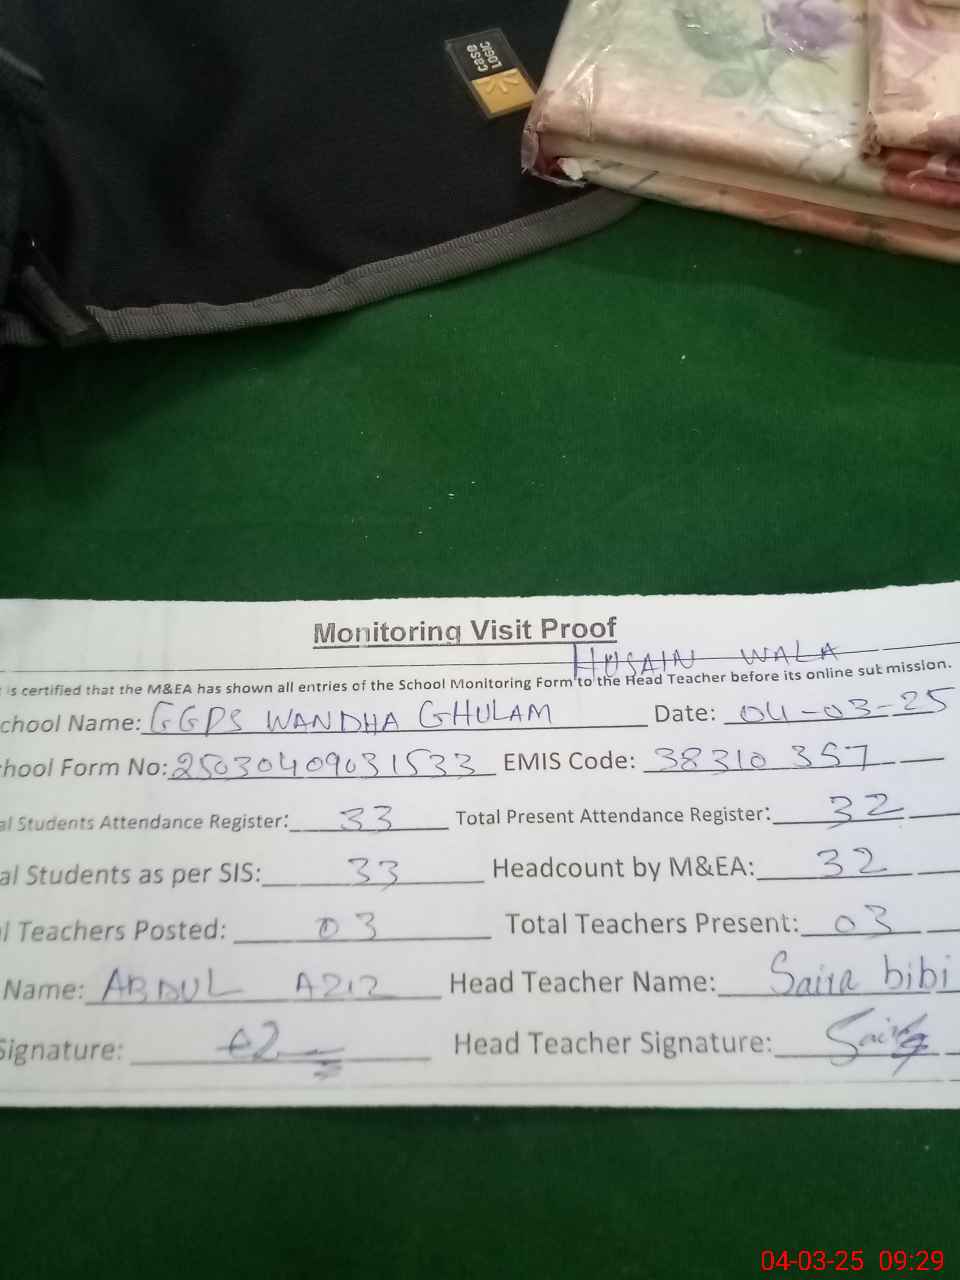 CASE
LOGIC
Monitoring Visit Proof
HUSAIN WALA
is certified that the M&EA has shown all entries of the School Monitoring Form to the Head Teacher before its online submission.
chool Name: GGPS WANDHA GHULAM Date: 04-03-25
hool Form No: 25030409031533 EMIS Code: 38310357
al Students Attendance Register: 33 Total Present Attendance Register: 32
al Students as per SIS: 33 Headcount by M&EA: 32
l Teachers Posted: 03 Total Teachers Present: 03
Name: ABDUL AZIZ Head Teacher Name: Saira bibi
Signature: Head Teacher Signature: Saira
04-03-25 09:29